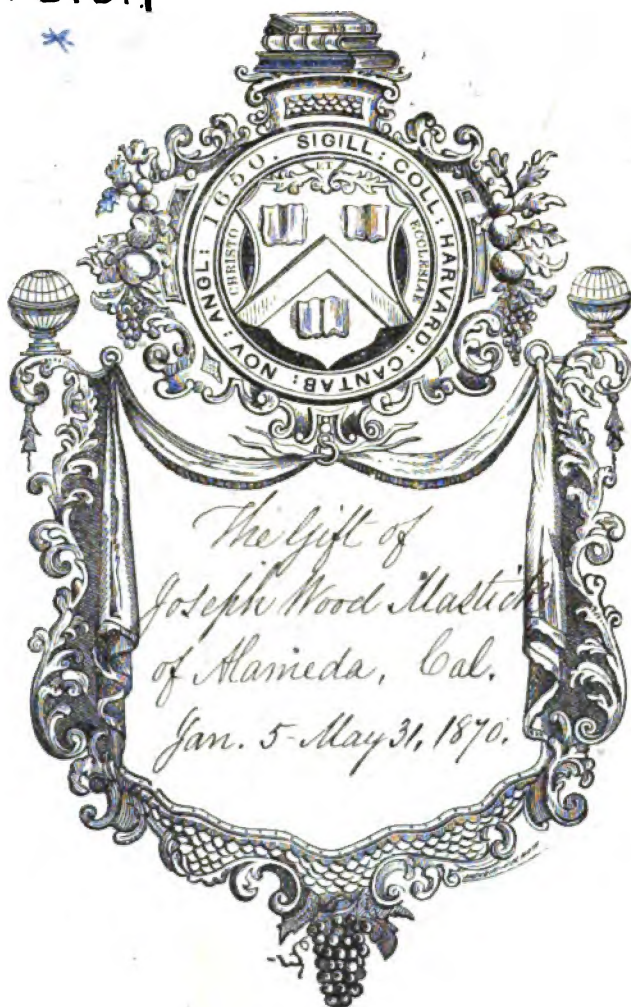 SIGILL : COLL : HARVARD : CANTAB : NOV : ANGL : 1650.
CHRISTO
ET
ECCLESIAE
The Gift of
Joseph Wood Mastick
of Alameda, Cal.
Jan. 5 - May 31, 1870.